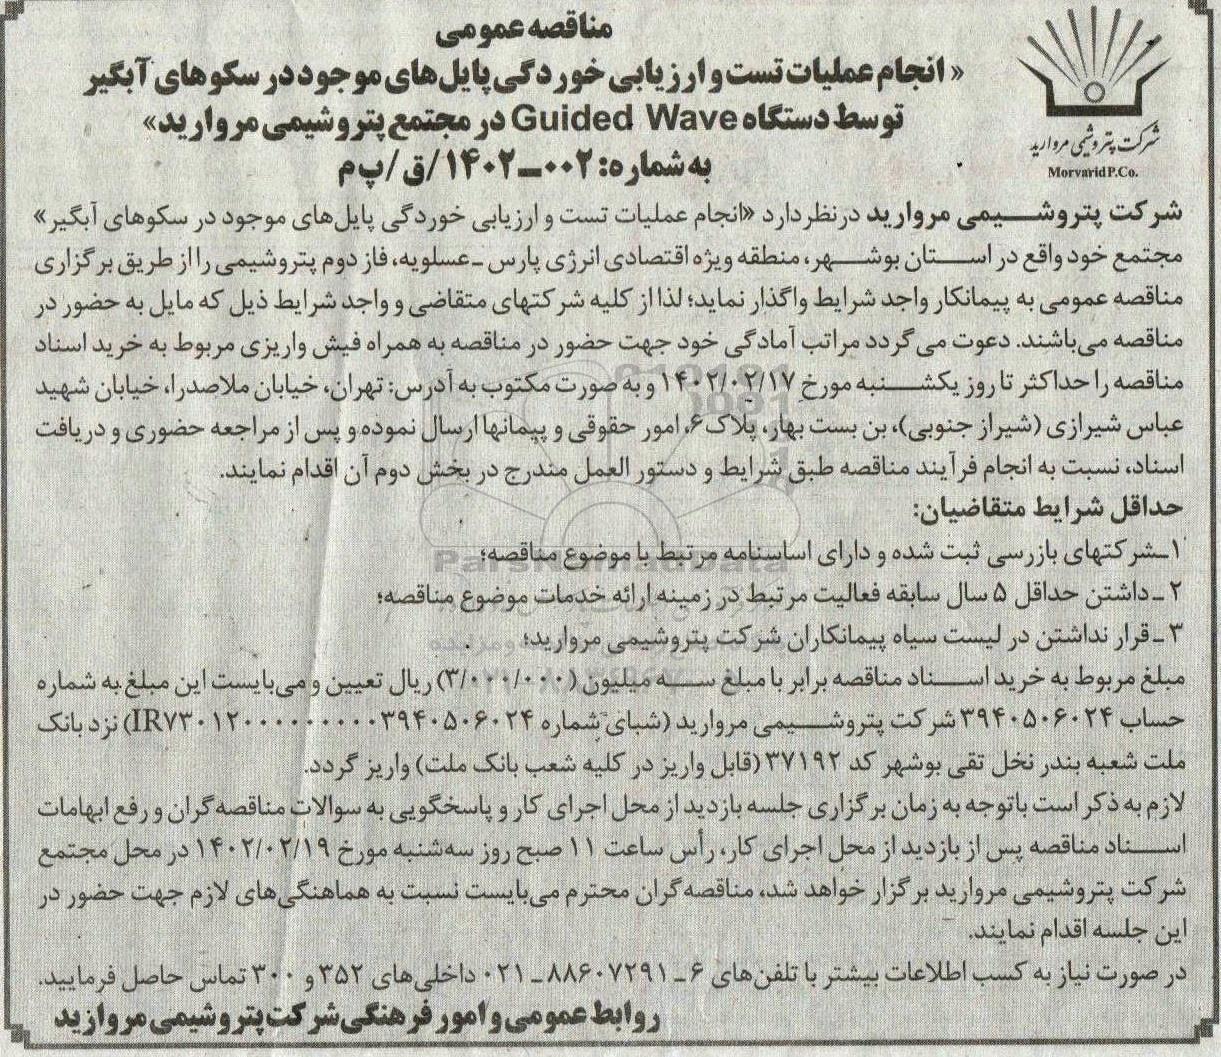 مناقصه عمومی
« انجام عملیات تست و ارزیابی خوردگی پایل‌های موجود در سکوهای آبگیر
توسط دستگاه Guided Wave در مجتمع پتروشیمی مروارید»
به شماره: ۰۰۲ـ۱۴۰۲/ق/پ م
شرکت پتروشیمی مروارید
Morvarid P.Co.
شرکت پتروشیمی مروارید درنظر دارد «انجام عملیات تست و ارزیابی خوردگی پایل‌های موجود در سکوهای آبگیر»
مجتمع خود واقع در استان بوشهر، منطقه ویژه اقتصادی انرژی پارس ـ عسلویه، فاز دوم پتروشیمی را از طریق برگزاری
مناقصه عمومی به پیمانکار واجد شرایط واگذار نماید؛ لذا از کلیه شرکتهای متقاضی و واجد شرایط ذیل که مایل به حضور در
مناقصه می‌باشند. دعوت می‌گردد مراتب آمادگی خود جهت حضور در مناقصه به همراه فیش واریزی مربوط به خرید اسناد
مناقصه را حداکثر تا روز یکشنبه مورخ ۱۴۰۲/۰۲/۱۷ و به صورت مکتوب به آدرس: تهران، خیابان ملاصدرا، خیابان شهید
عباس شیرازی (شیراز جنوبی)، بن بست بهار، پلاک ۶، امور حقوقی و پیمانها ارسال نموده و پس از مراجعه حضوری و دریافت
اسناد، نسبت به انجام فرآیند مناقصه طبق شرایط و دستور العمل مندرج در بخش دوم آن اقدام نمایند.
حداقل شرایط متقاضیان:
۱ـ شرکتهای بازرسی ثبت شده و دارای اساسنامه مرتبط با موضوع مناقصه؛
۲ ـ داشتن حداقل ۵ سال سابقه فعالیت مرتبط در زمینه ارائه خدمات موضوع مناقصه؛
۳ ـ قرار نداشتن در لیست سیاه پیمانکاران شرکت پتروشیمی مروارید؛
مبلغ مربوط به خرید اسناد مناقصه برابر با مبلغ سه میلیون (۳/۰۰۰/۰۰۰) ریال تعیین و می‌بایست این مبلغ به شماره
حساب ۳۹۴۰۵۰۶۰۲۴ شرکت پتروشیمی مروارید (شبای شماره IR۷۳۰۱۲۰۰۰۰۰۰۰۰۰۳۹۴۰۵۰۶۰۲۴) نزد بانک
ملت شعبه بندر نخل تقی بوشهر کد ۳۷۱۹۲ (قابل واریز در کلیه شعب بانک ملت) واریز گردد.
لازم به ذکر است باتوجه به زمان برگزاری جلسه بازدید از محل اجرای کار و پاسخگویی به سوالات مناقصه‌گران و رفع ابهامات
اسناد مناقصه پس از بازدید از محل اجرای کار، رأس ساعت ۱۱ صبح روز سه‌شنبه مورخ ۱۴۰۲/۰۲/۱۹ در محل مجتمع
شرکت پتروشیمی مروارید برگزار خواهد شد، مناقصه‌گران محترم می‌بایست نسبت به هماهنگی‌های لازم جهت حضور در
این جلسه اقدام نمایند.
در صورت نیاز به کسب اطلاعات بیشتر با تلفن‌های ۶ ـ ۸۸۶۰۷۲۹۱ ـ ۰۲۱ داخلی‌های ۳۵۲ و ۳۰۰ تماس حاصل فرمایید.
روابط عمومی و امور فرهنگی شرکت پتروشیمی مروارید
ParsNamadData